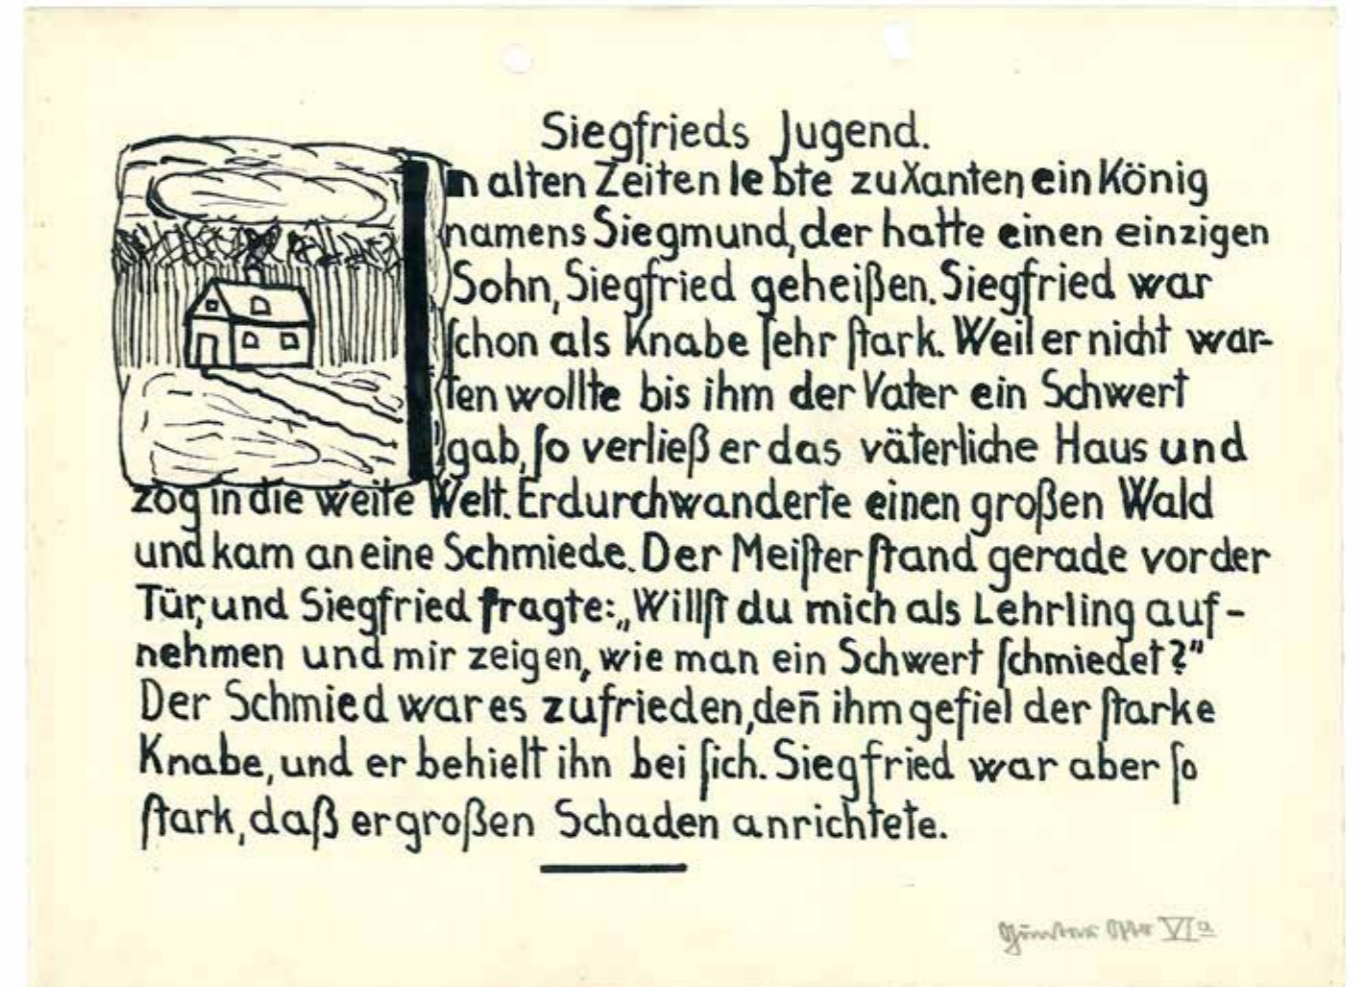 Siegfrieds Jugend.
In alten Zeiten lebte zu Xanten ein König
namens Siegmund, der hatte einen einzigen
Sohn, Siegfried geheißen. Siegfried war
ſchon als Knabe ſehr ſtark. Weil er nicht war-
ten wollte bis ihm der Vater ein Schwert
gab, ſo verließ er das väterliche Haus und
zog in die weite Welt. Er durchwanderte einen großen Wald
und kam an eine Schmiede. Der Meiſter ſtand gerade vor der
Tür, und Siegfried fragte: „Willſt du mich als Lehrling auf-
nehmen und mir zeigen, wie man ein Schwert ſchmiedet?"
Der Schmied war es zufrieden, den̄ ihm gefiel der ſtarke
Knabe, und er behielt ihn bei ſich. Siegfried war aber ſo
ſtark, daß er großen Schaden anrichtete.
Günther Otto VIa